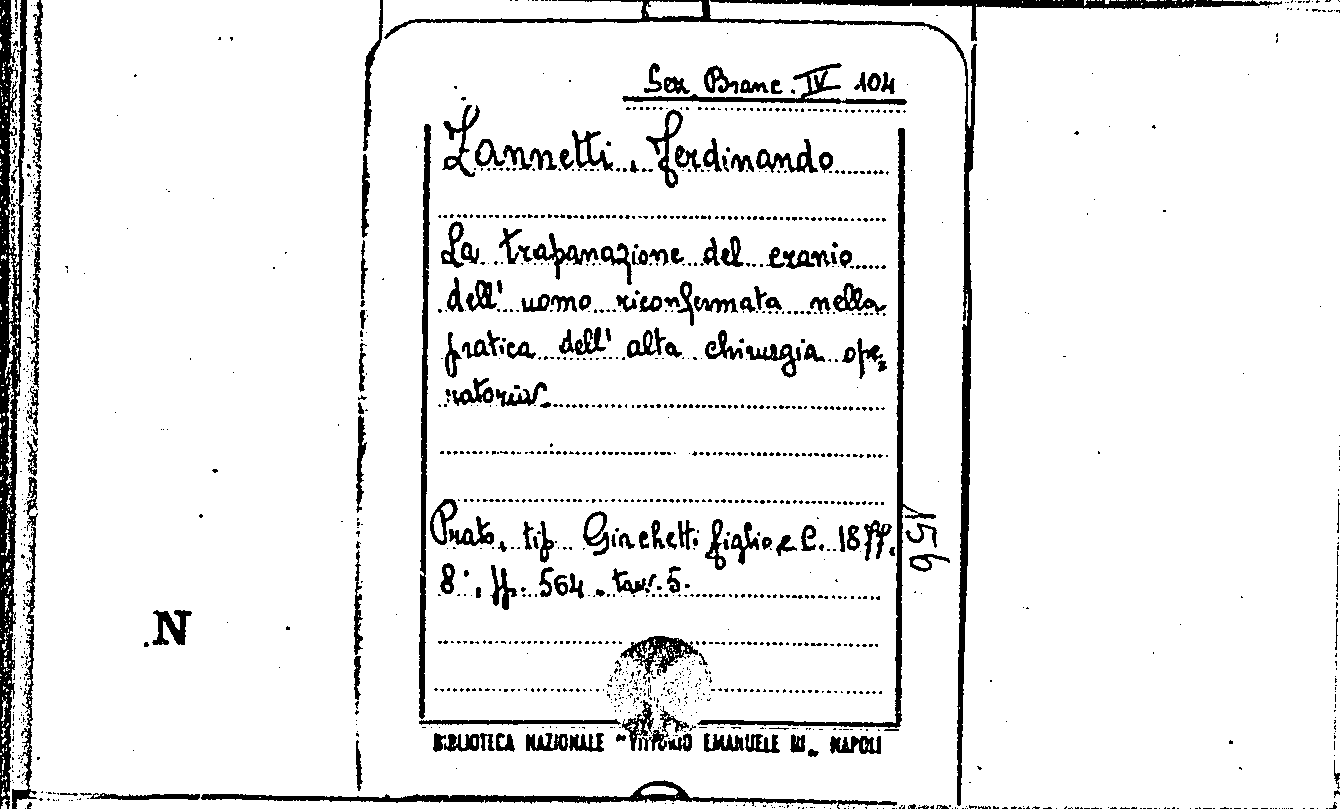 Sez. Branc. IV 104
Zannetti, Ferdinando
La trapanazione del cranio
dell' uomo riconfermata nella
pratica dell' alta chirurgia ope=
ratoria.
Prato, tip. Giachetti figlio e C. 1877.
8°. pp. 564. tav. 5.
156
N
BIBLIOTECA NAZIONALE "VITTORIO EMANUELE III" NAPOLI